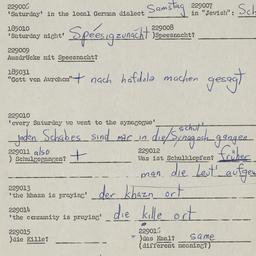 229006 229007
'Saturday' in the local German dialect Samstag in "Jewish": Sch
185010 229008
'Saturday night' Speesigzunacht )Speesnacht?
229009
Ausdrücke mit Speesnacht?
189031
"Gott von Avrohom" + nach hafdole machen gesagt
229010
'every Saturday we went to the synagogue'
jeden Schabes sind mir in die/Synagoch gangen
schul'
229011 also 229012
) Schulgangen? + Was ist Schulklopfen? früher
man die Leut' aufge
229013
'the khazn is praying' der khazn ort
229014
'the community is praying' die kille ort
229015 229016
)die Kille? )das Kaal? same
(different meaning?)